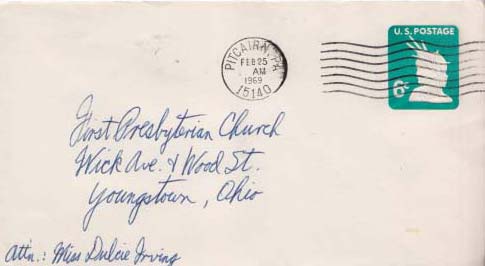 U.S. POSTAGE
6¢
PITCAIRN, PA
FEB 25
AM
1969
15140
First Presbyterian Church
Wick Ave. & Wood St.
Youngstown, Ohio
Attn.: Miss Dulcie Irving